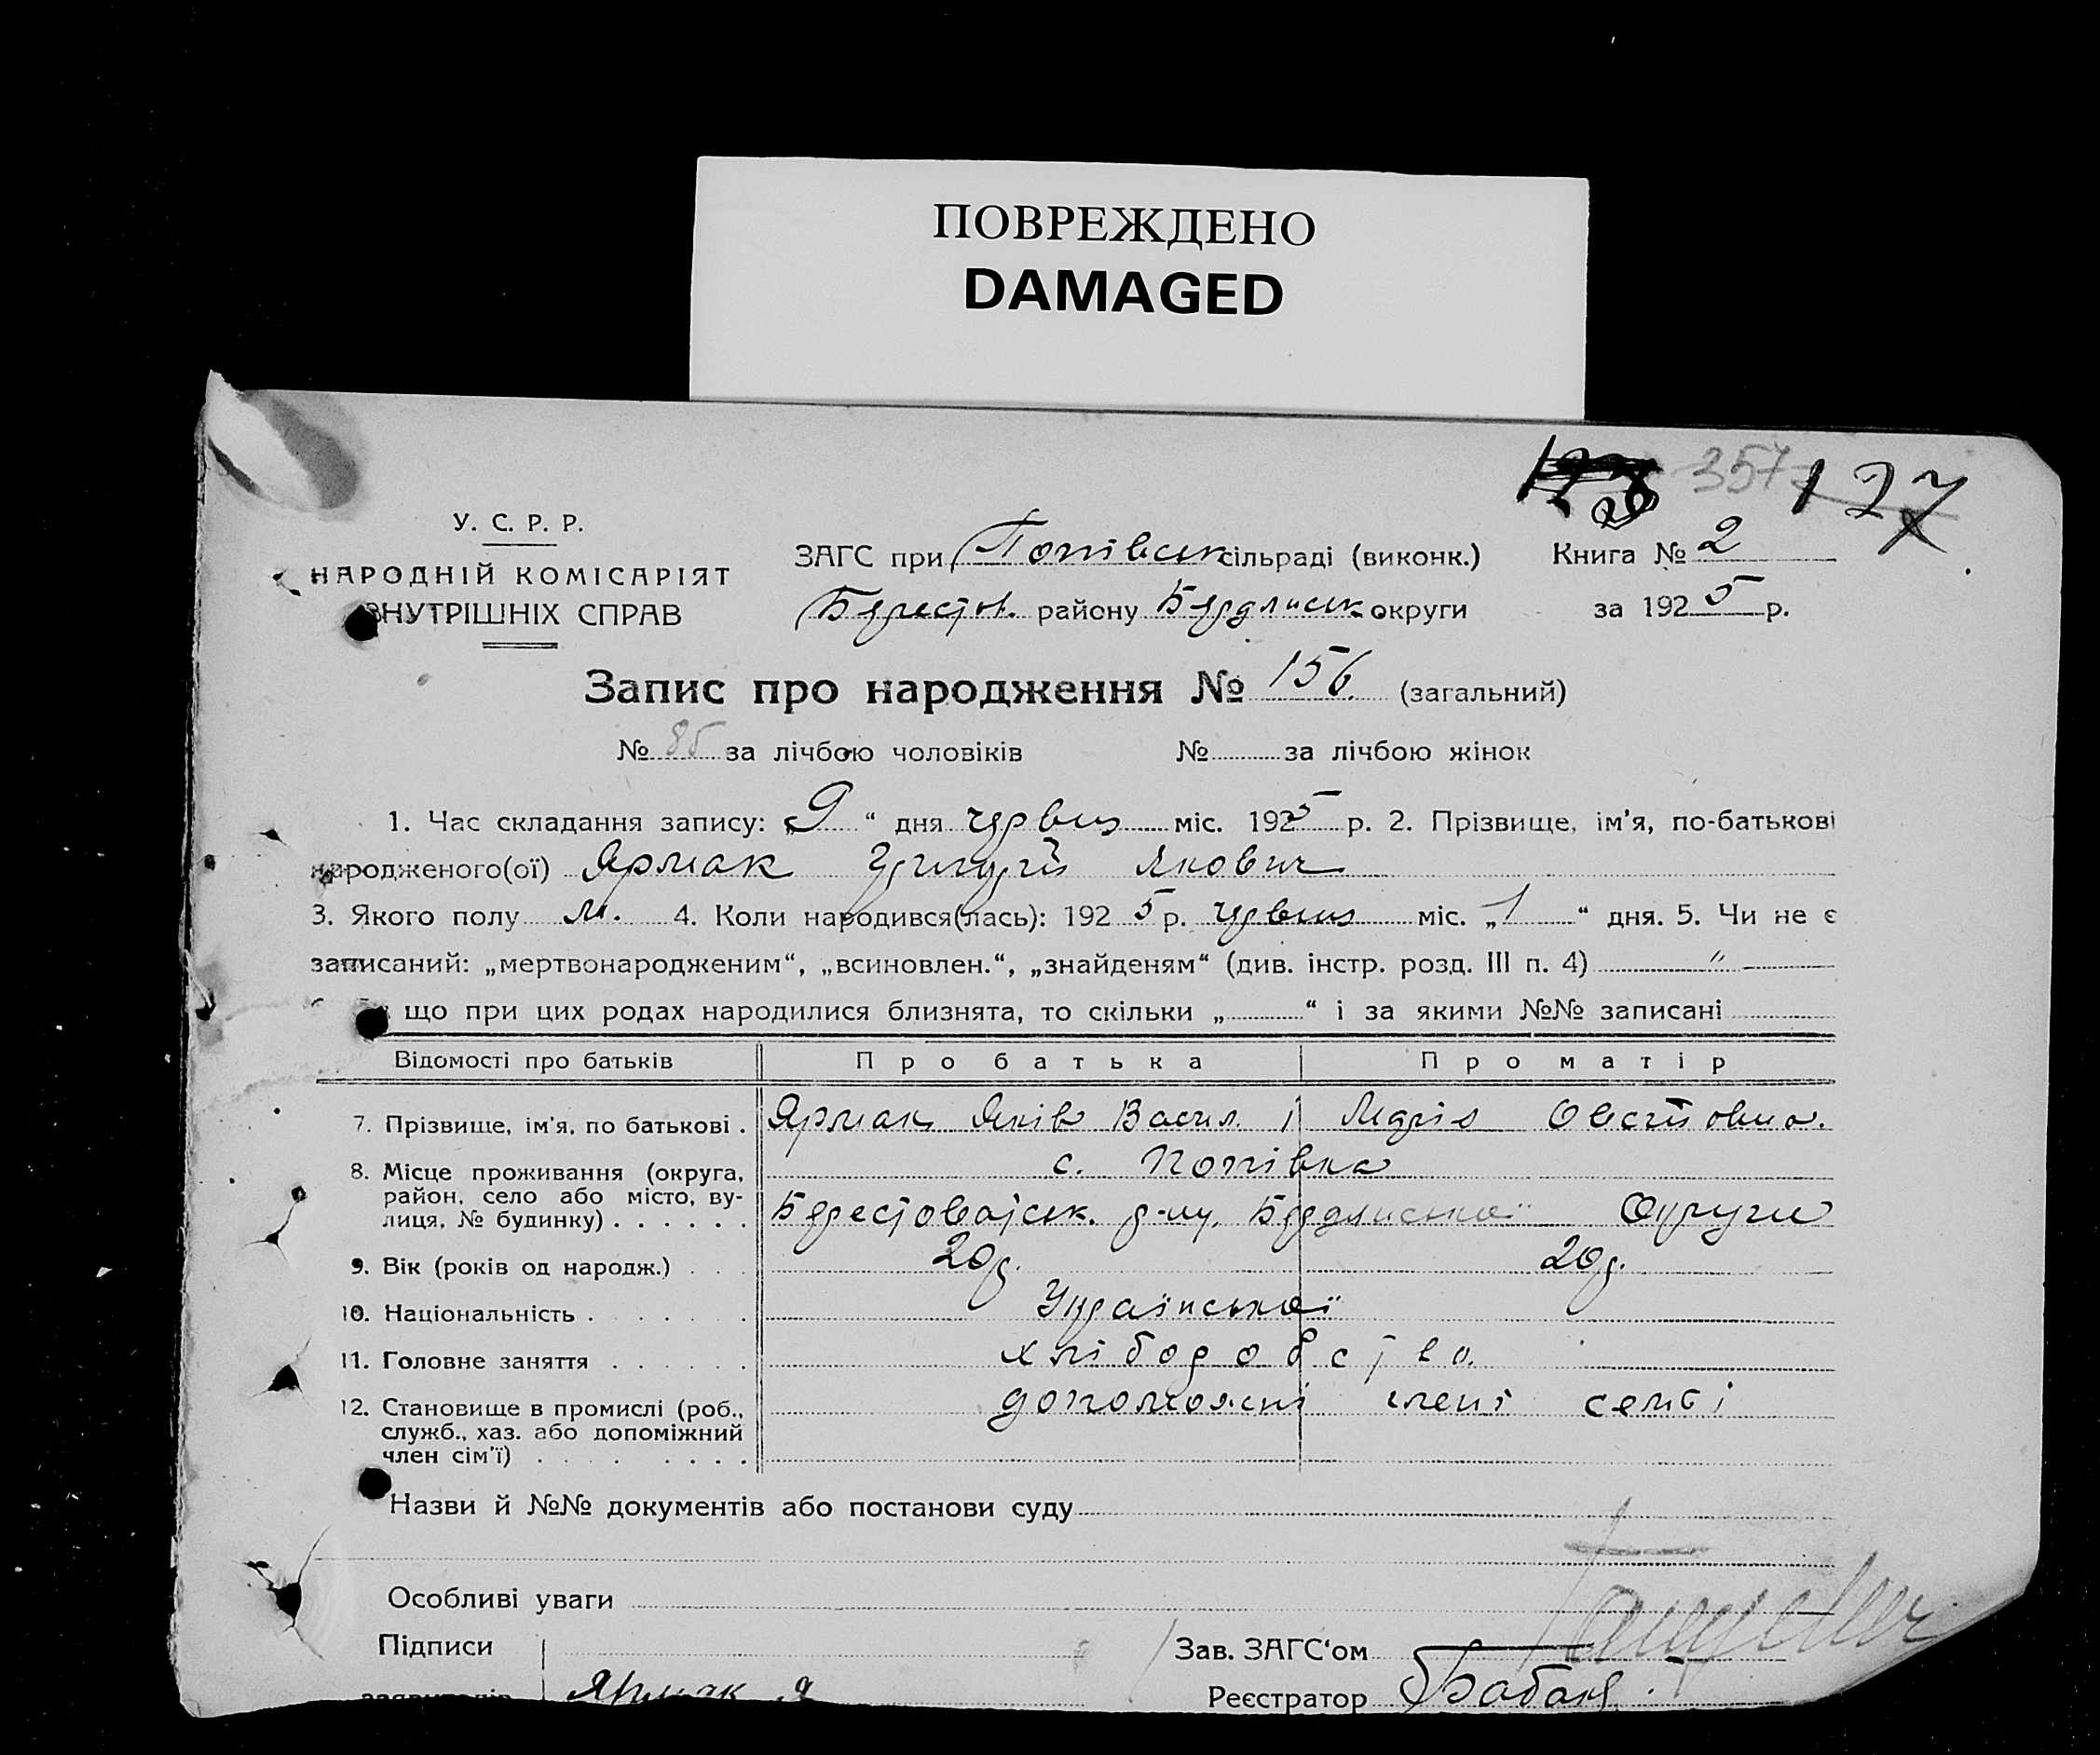 ПОВРЕЖДЕНО
DAMAGED
357 127
У. С. Р. Р.
НАРОДНІЙ КОМІСАРІЯТ
ВНУТРІШНІХ СПРАВ
ЗАГС при Попівськ сільраді (виконк.) Книга № 2
Берестов. району Бердянськ округи за 1925 р.
Запис про народження № 156. (загальний)
№ 85 за лічбою чоловіків № за лічбою жінок
1. Час складання запису: „9“ дня червня міс. 1925 р. 2. Прізвище, ім'я, по-батькові
народженого(ої) Ярмак Григорій Якович
3. Якого полу м. 4. Коли народився(лась): 1925 р. червня міс. „1“ дня. 5. Чи не є
записаний: „мертвонародженим“, „всиновлен.“, „знайденям“ (див. інстр. розд. III п. 4) "
що при цих родах народилися близнята, то скільки „ “ і за якими №№ записані
Відомості про батьків Про батька Про матір
7. Прізвище, ім'я, по батькові . Ярмак Яків Васил. і Марія
8. Місце проживання (округа, с. Попівка
район, село або місто, ву-
лиця, № будинку) . . . . . . Берестоватськ. р-ну, Бердянської Округи
9. Вік (років од народж.) . . . 20 р. 20 р.
10. Національність . . . . . . Української
11. Головне заняття . . . . . . хліборобство.
12. Становище в промислі (роб., допоможні члени семї
служб., хаз. або допоміжний
член сім'ї) . . . . . . . .
Назви й №№ документів або постанови суду
Особливі уваги
Підписи Зав. ЗАГС'ом
Ярмак Я Реєстратор